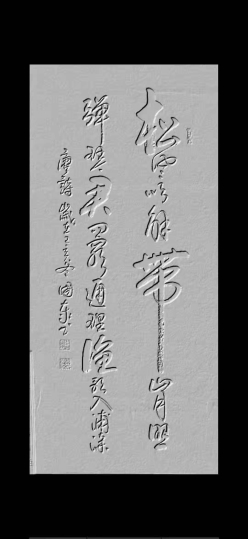 松风吹解带山月照
弹琴君问穷通理渔歌入浦深
唐诗岁在